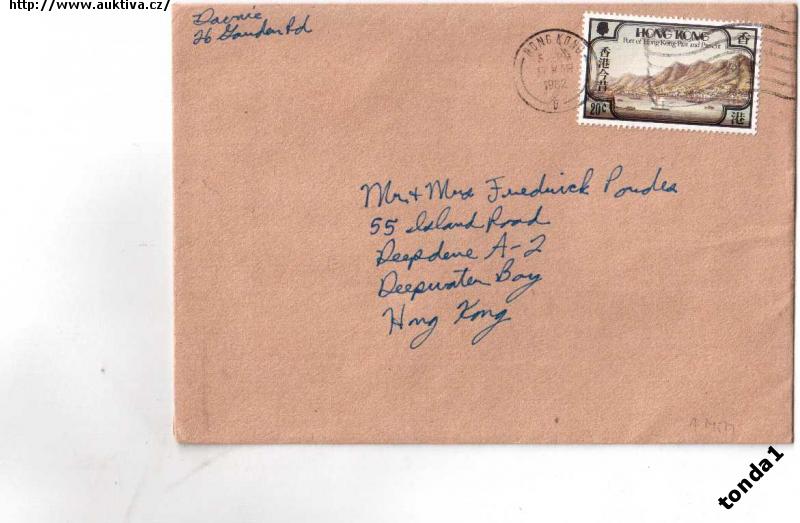 http://www.auktiva.cz/
26 Rd
HONG KONG
1982
6
HONG KONG
Port of Hong Kong Past and Present
香港今昔
香
港
20c
Mr + Mrs Fredrick
55 Island Road
Deepdene A-2
Deepwater Bay
Hong Kong
tonda1